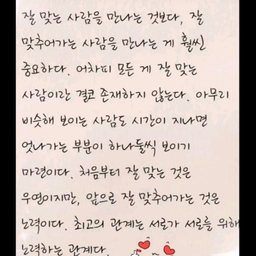 잘 맞는 사람을 만나는 것보다, 잘
맞추어가는 사람을 만나는 게 훨씬
중요하다. 어차피 모든 게 잘 맞는
사람이란 결코 존재하지 않는다. 아무리
비슷해 보이는 사람도 시간이 지나면
엇나가는 부분이 하나둘씩 보이기
마련이다. 처음부터 잘 맞는 것은
우연이지만, 앞으로 잘 맞추어가는 것은
노력이다. 최고의 관계는 서로가 서로를 위해
노력하는 관계다.